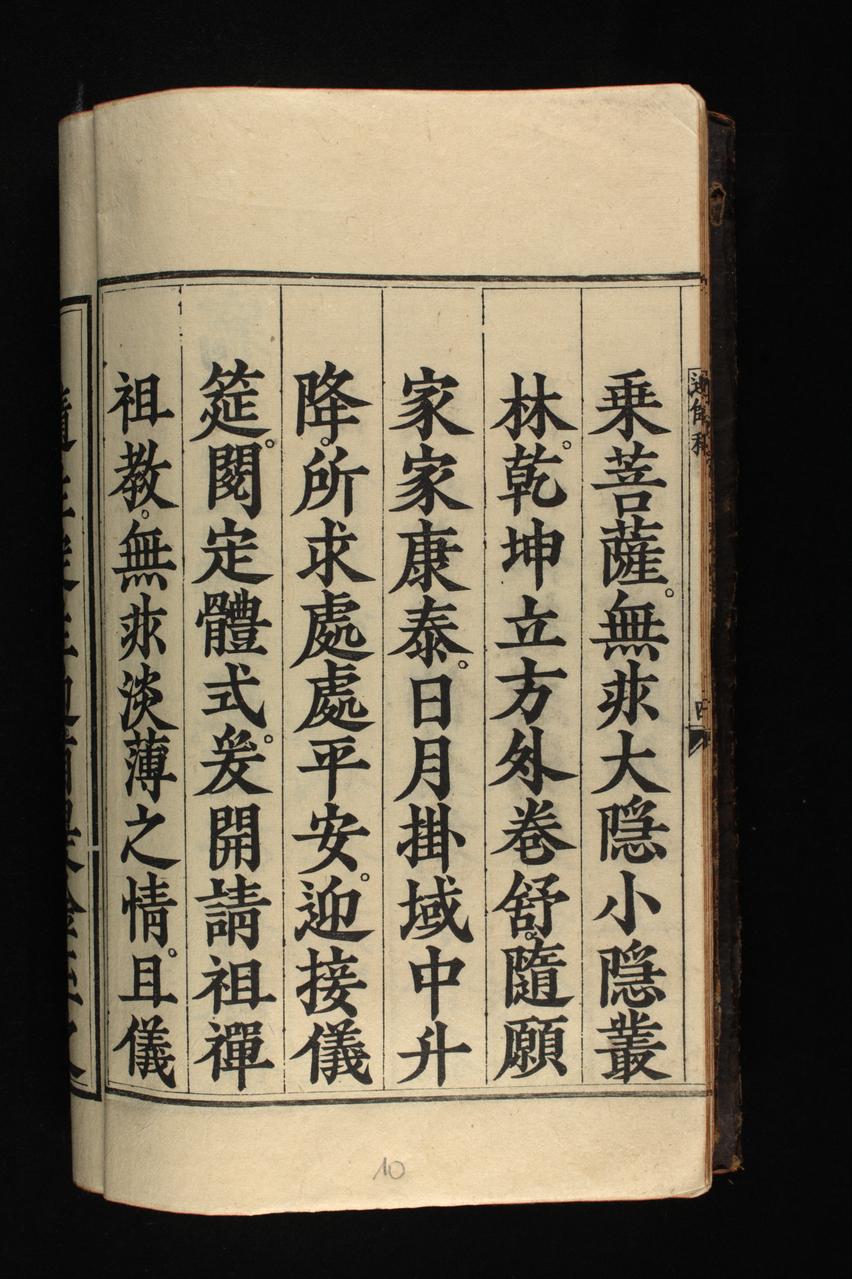 乗菩薩。無求大隠小隠叢
林。乾坤立方外卷舒。隨願
家家康泰。日月掛域中升
降。所求處處平安。迎接儀
筵。閱定體式。爰開請祖禪
祖教。無求淡薄之情。且儀
四
10